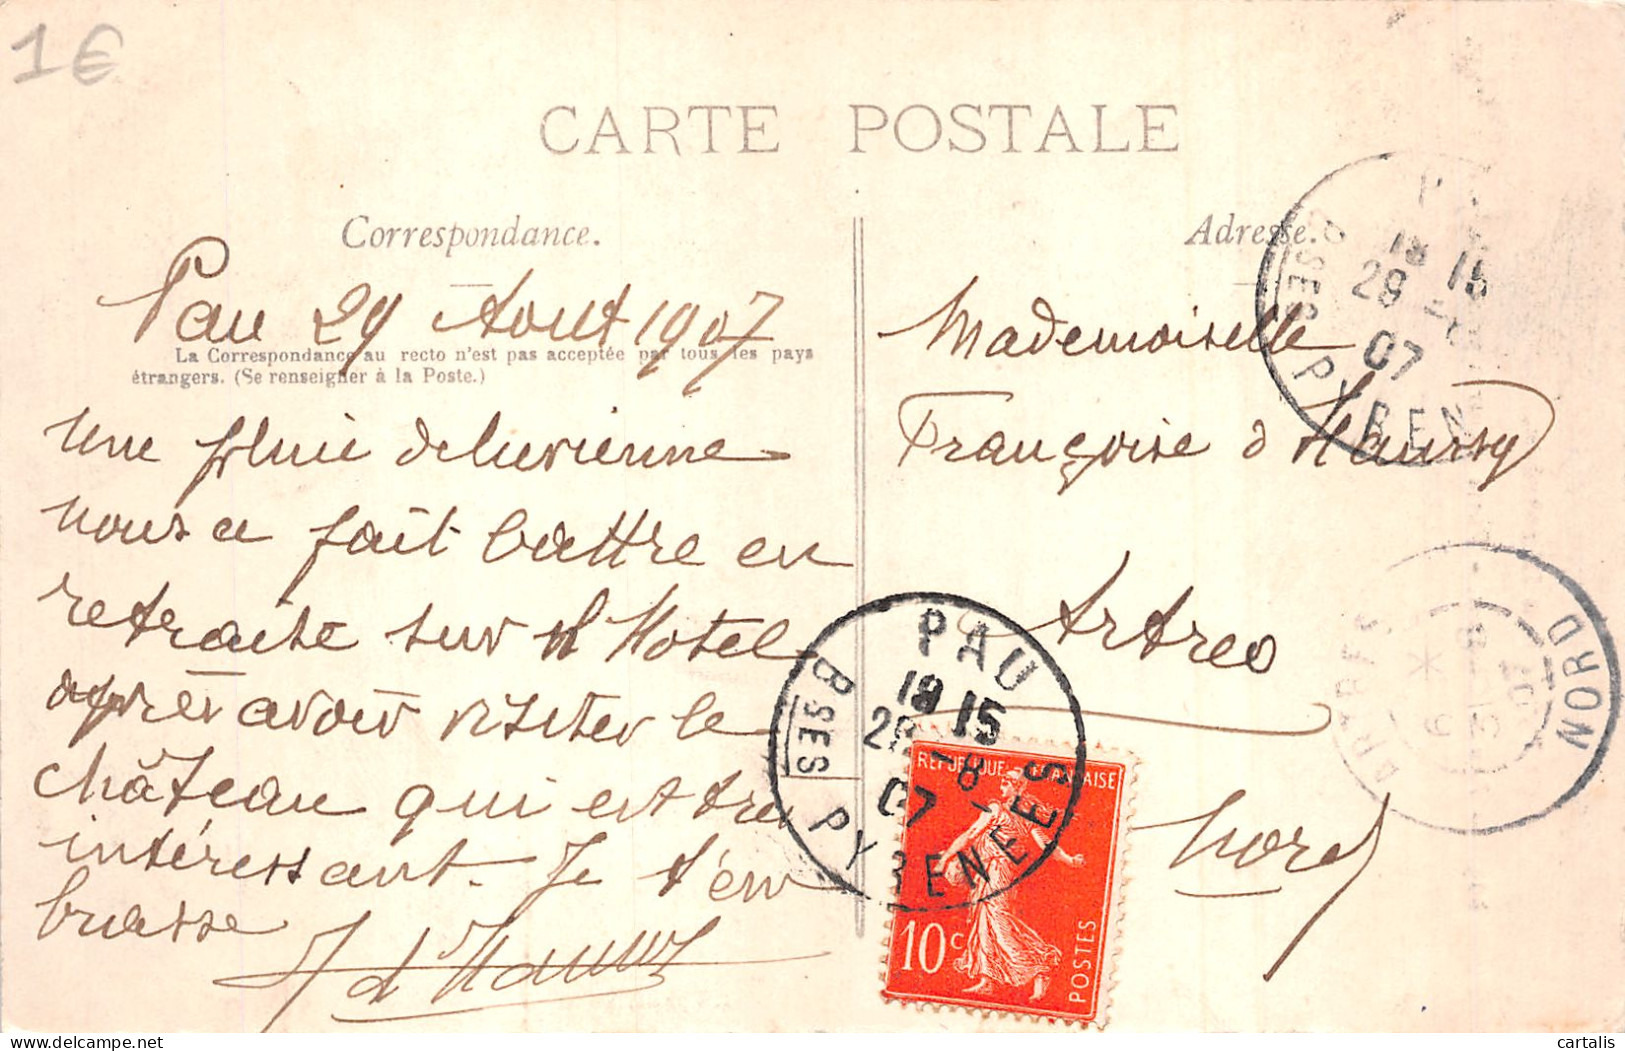 1€
CARTE POSTALE
Correspondance.
Adresse.
Pau 29 Aout 1907
La Correspondance au recto n'est pas acceptée par tous les pays
étrangers. (Se renseigner à la Poste.)
une pluie deluvienne
nous a fait battre en
retraite sur l'Hotel
après avoir visiter le
château qui est très
intéressant. Je t'em
brasse
Mademoiselle
Françoise d
Artres
Nord
PAU
18 15
07
BSES PYRENEES
18 15
28 -8
07
BSES PYREN
NORD
REPUBLIQUE FRANÇAISE
10c
POSTES
cartalis